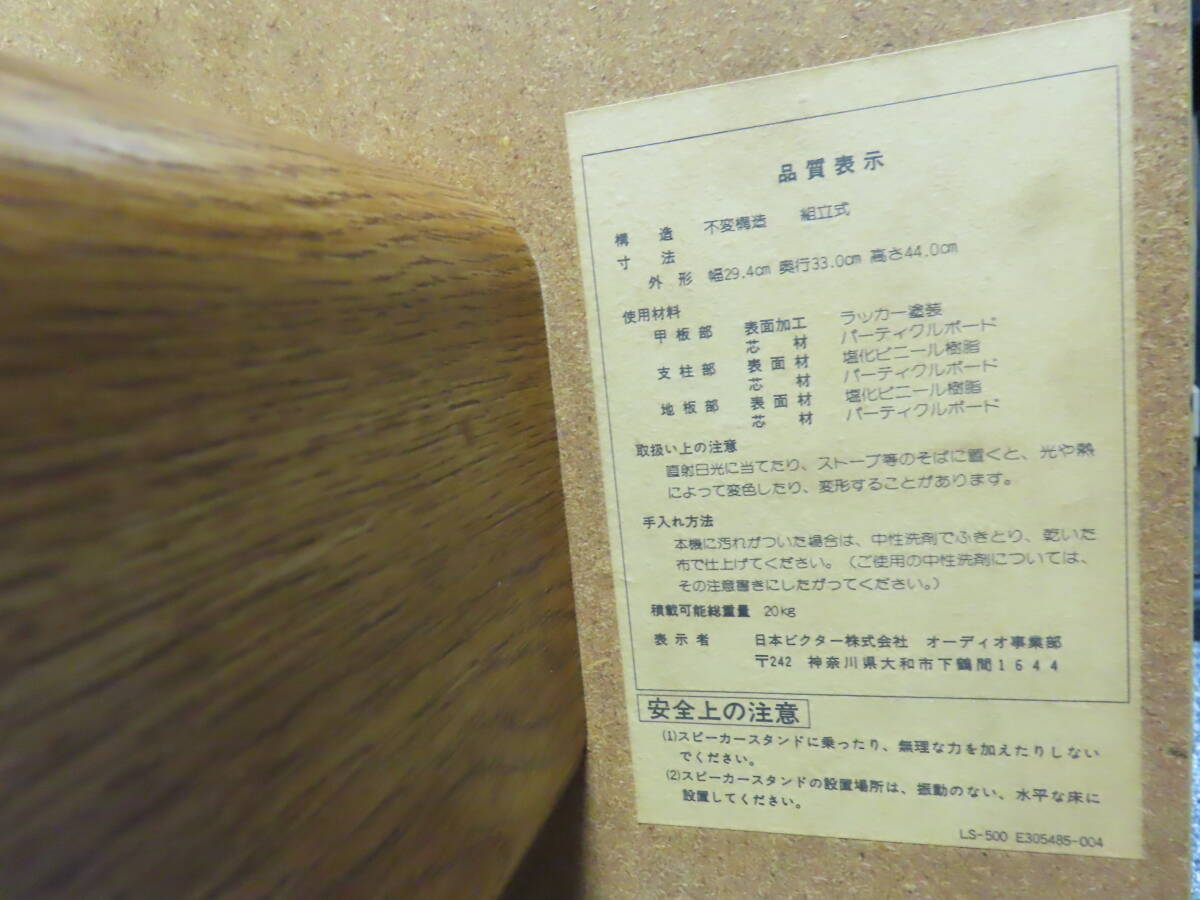 品質表示
構造 不変構造 組立式
寸法
外形 幅29.4cm 奥行33.0cm 高さ44.0cm
使用材料
甲板部 表面加工 ラッカー塗装
芯材 パーティクルボード
支柱部 表面材 塩化ビニール樹脂
芯材 パーティクルボード
地板部 表面材 塩化ビニール樹脂
芯材 パーティクルボード
取扱い上の注意
直射日光に当てたり、ストーブ等のそばに置くと、光や熱
によって変色したり、変形することがあります。
手入れ方法
本機に汚れがついた場合は、中性洗剤でふきとり、乾いた
布で仕上げてください。(ご使用の中性洗剤については、
その注意書きにしたがってください。)
積載可能総重量 20kg
表示者 日本ビクター株式会社 オーディオ事業部
〒242 神奈川県大和市下鶴間1644
安全上の注意
(1)スピーカースタンドに乗ったり、無理な力を加えたりしない
でください。
(2)スピーカースタンドの設置場所は、振動のない、水平な床に
設置してください。
LS-500 E305485-004